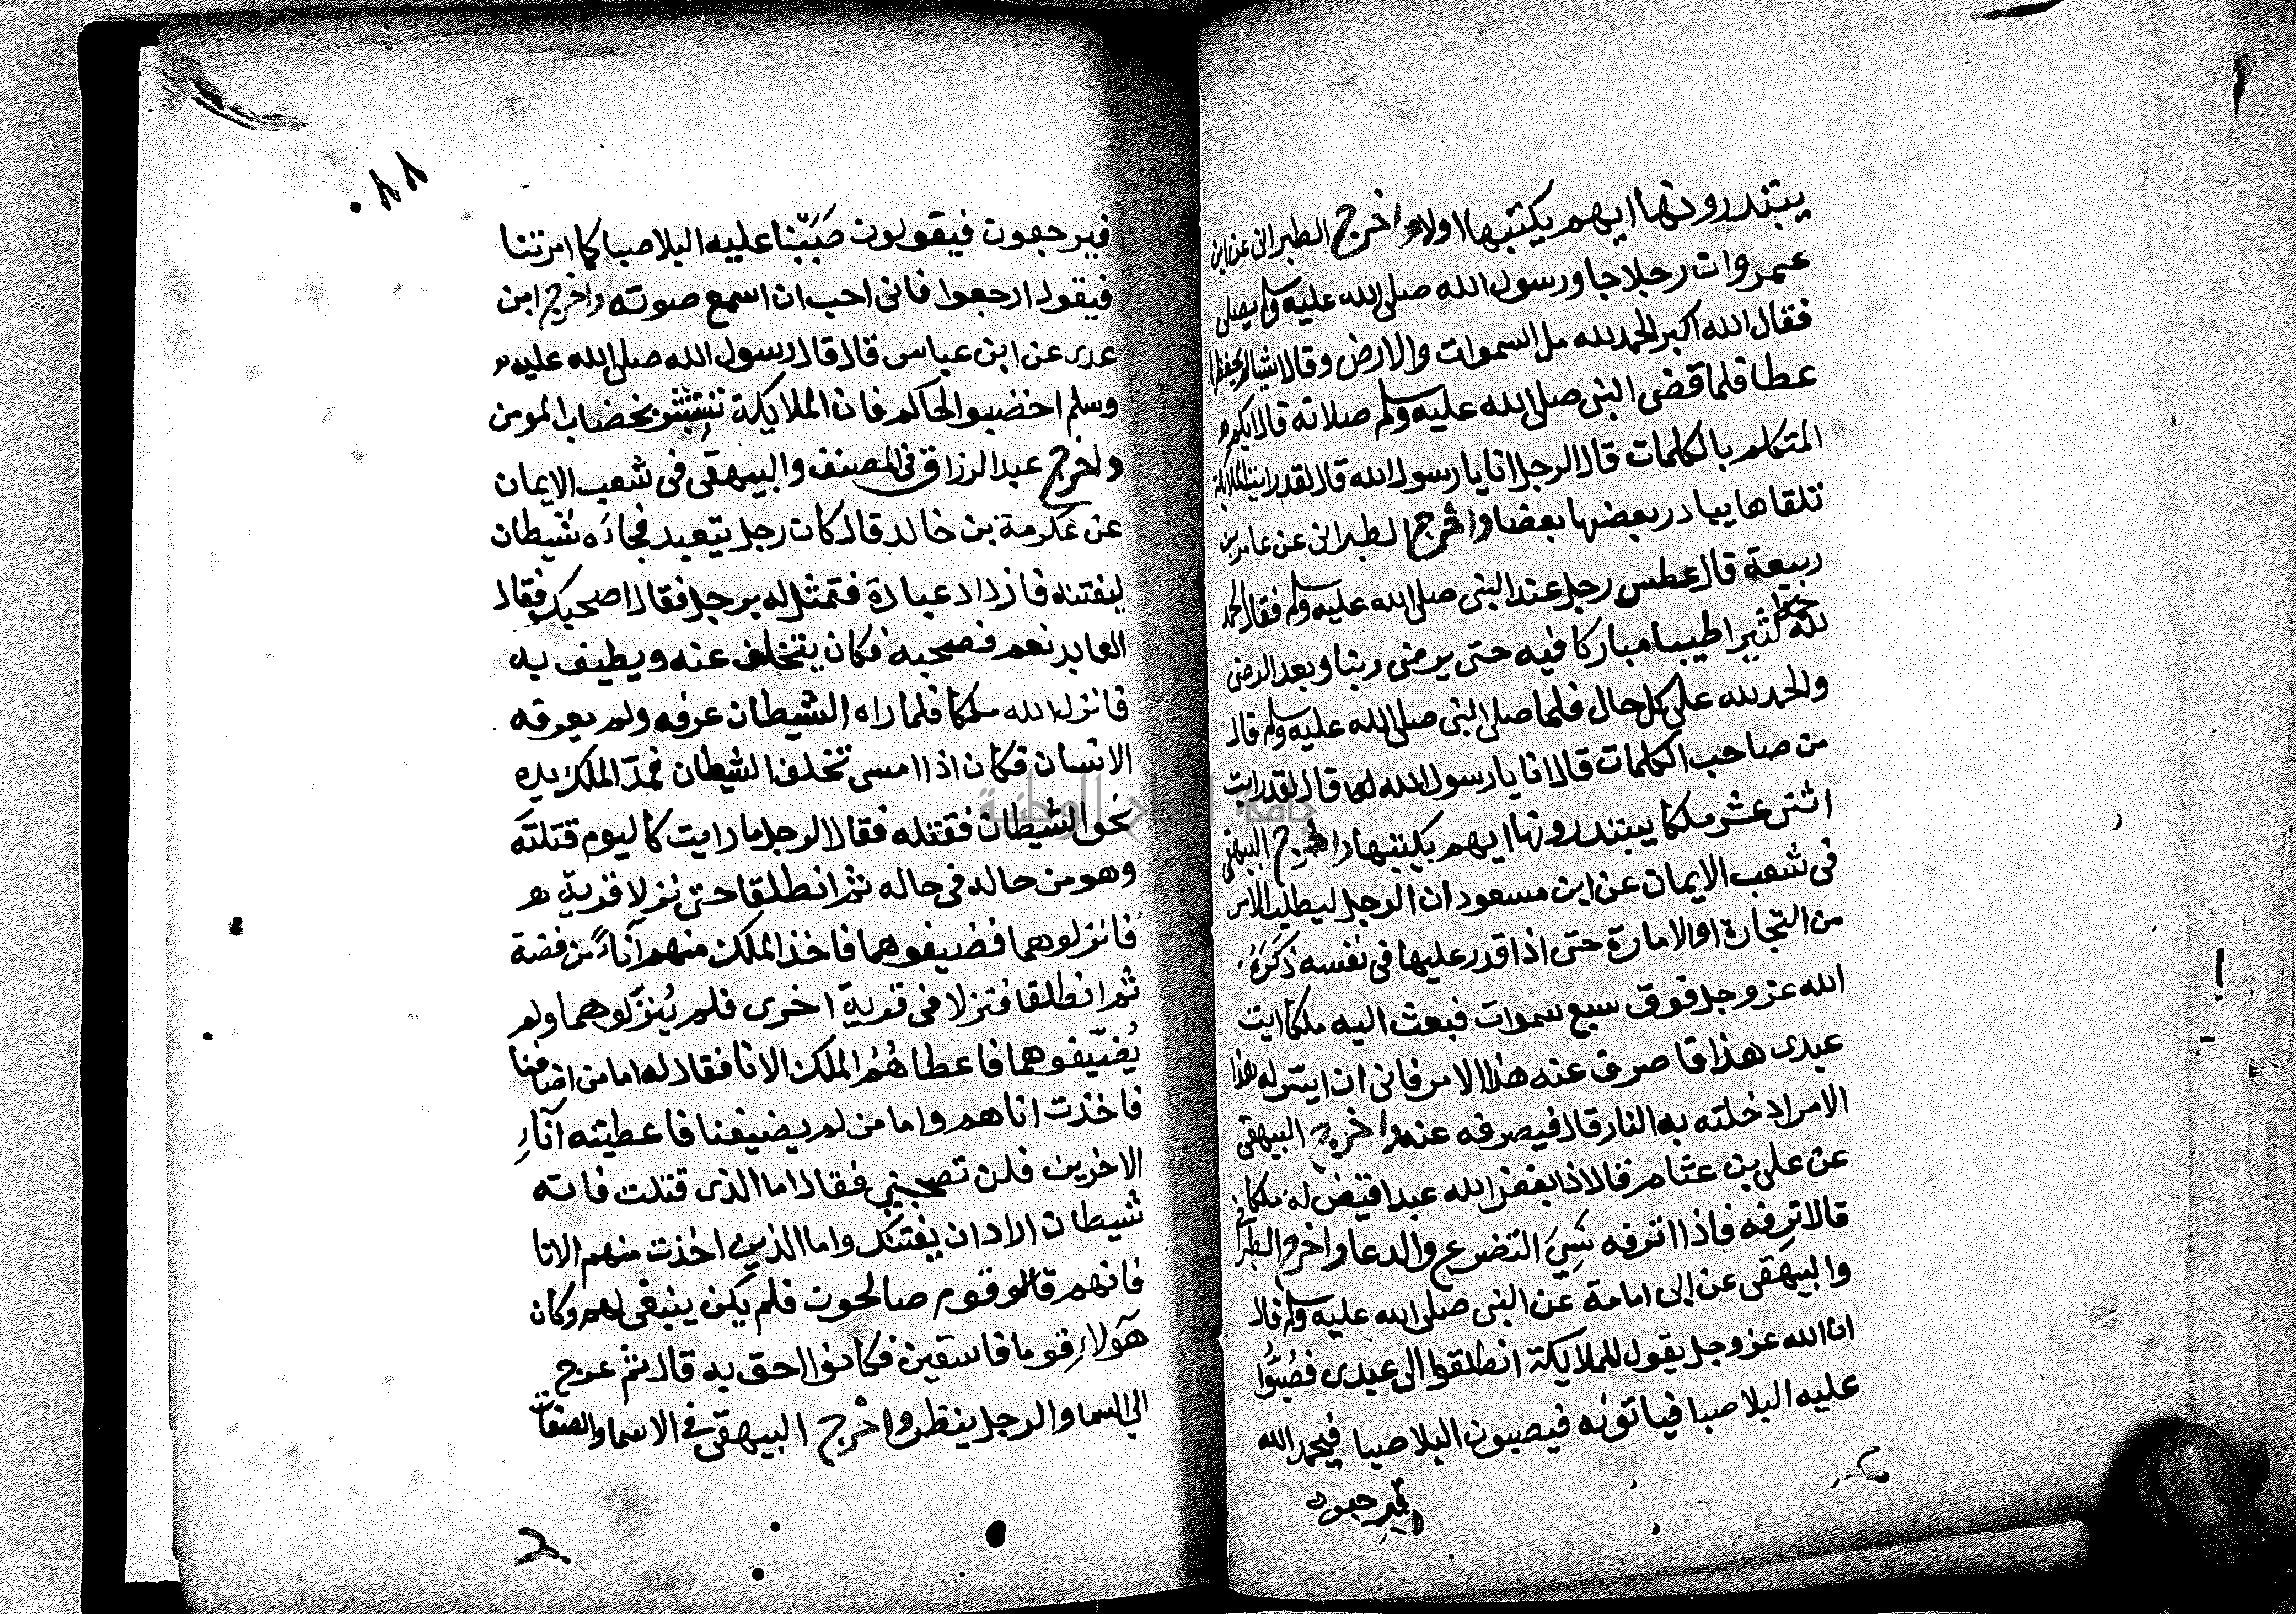 يبتدرونها ايهم يكتبها اولا واخرج الطبرانى عن ابن
عمر وان رجلا جا ورسول الله صلى الله عليه وسلم يصلى
فقال الله اكبر الحمد لله مل السموات والارض وقال اشيا لم يحفظها
عطا فلما قضى النبى صلى الله عليه وسلم صلاته قال ايكم
المتكلم بالكلمات قال الرجل انا يا رسول الله قال لقد رايت الملايكة
تلقاها يبادر بعضها بعضا واخرج الطبرانى عن عامر بن
ربيعة قال عطس رجل عند النبى صلى الله عليه وسلم فقال الحمد
لله كثيرا طيبا مباركا فيه حتى يرضى ربنا وبعد الرضى
والحمد لله على كل حال فلما صلى النبى صلى الله عليه وسلم قال
من صاحب الكلمات قال انا يا رسول الله قال لقد رايت
اثنى عشر ملكا يبتدرونها ايهم يكتبها واخرج البيهقى
فى شعب الايمان عن ابن مسعود ان الرجل ليطلب الامر
من التجارة او الامارة حتى اذا قدر عليها فى نفسه ذكره
الله عز وجل فوق سبع سموات فبعث اليه ملكا ايت
عبدى هذا فاصرف عنه هذا الامر فانى ان ايسر له هذا
الامر ادخلته به النار قال فيصرفه عنه واخرج البيهقى
عن على بن عثام قال اذا بغض الله عبدا قيض له ملكا
قال اترفه فاذا اترفه نسى التضرع والدعا واخرج الطبرانى
والبيهقى عن ابى امامة عن النبى صلى الله عليه وسلم قال
ان الله عز وجل يقول للملايكة انطلقوا الى عبدى فصبوا
عليه البلا صبا فياتونه فيصبون البلا صبا فيحمد الله
فيرجعون
٠٨٨
فيرجعون فيقولون صببنا عليه البلا صبا كما امرتنا
فيقول ارجعوا فانى احب ان اسمع صوته واخرج ابن
عدى عن ابن عباس قال قال رسول الله صلى الله عليه
وسلم اخضبوا لحاكم فان الملايكة تستبشر بخضاب المومن
واخرج عبد الرزاق فى المصنف والبيهقى فى شعب الايمان
عن عكرمة بن خالد قال كان رجل يتعبد فجاءه شيطان
ليفتنه فازداد عبادة فتمثل له برجل فقال اصحبك فقال
العابد نعم فصحبه فكان يتخلف عنه ويطيف به
فانزل الله ملكا فلما راه الشيطان عرفه ولم يعرفه
الانسان فكان اذا امسى تخلف الشيطان فمد الملك يده
نحو الشيطان فقتله فقال الرجل ما رايت كاليوم قتلته
وهو من حاله فى حاله ثم انطلقا حتى نزلا قرية
فانزلوهما فضيفوهما فاخذ الملك منهم آناءً من فضة
ثم انطلقا فنزلا فى قرية اخرى فلم يُنزّلوهما ولم
يُضيّفوهما فاعطاهُمُ الملك الانا فقال له اما من اضافنا
فاخذت اناهم واما من لم يضيفنا فاعطيته آناءِ
الاخرين فلن تصحبنى فقال اما الذى قتلت فانه
شيطان اراد ان يفتنك واما الذين اخذت منهم الانا
فانهم قالوا قوم صالحون فلم يكن ينبغى لهم وكان
هَولاءِ قوما فاسقين فكانوا احق به قال ثم عرج
الى السما والرجل ينظر واخرج البيهقى فى الاسما والصفات
جامعة النجاح الوطنية